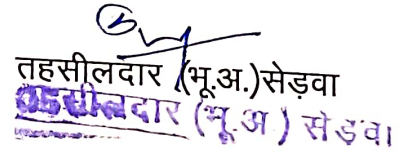 तहसीलदार (भू.अ.)सेड़वा
तहसीलदार (भू.अ) सेड़वा